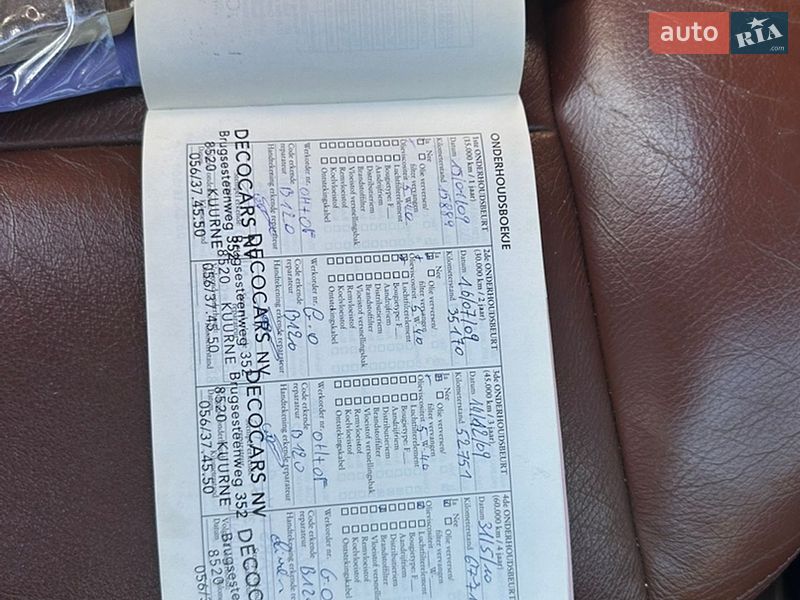 auto RIA .com
ONDERHOUDSBOEKJE
1ste ONDERHOUDSBEURT
(15.000 km / 1 jaar)
Datum
Kilometerstand 15884
Ja Nee
Olie verversen/
filter vervangen
Olieviscositeit 5 W 40
Luchtfilterelement
Bougietype: F
Aandrijfriem
Distributieriem
Brandstoffilter
Vloeistof versnellingsbak
Remvloeistof
Koelvloeistof
Ontstekingskabel
Werkorder nr. OH+OF
Code erkende
reparateur B120
Handtekening erkende reparateur
DECOCARS NV
Brugsesteenweg 352
8520 KUURNE
056/37.45.50
2de ONDERHOUDSBEURT
(30.000 km / 2 jaar)
Datum 16/07/09
Kilometerstand 35170
Ja Nee
Olie verversen/
filter vervangen
Olieviscositeit 5 W 40
Luchtfilterelement
Bougietype: F
Aandrijfriem
Distributieriem
Brandstoffilter
Vloeistof versnellingsbak
Remvloeistof
Koelvloeistof
Ontstekingskabel
Werkorder nr. G.O
Code erkende
reparateur B120
Handtekening erkende reparateur
DECOCARS NV
Brugsesteenweg 352
8520 KUURNE
056/37.45.50
3de ONDERHOUDSBEURT
(45.000 km / 3 jaar)
Datum 14/12/09
Kilometerstand 52751
Ja Nee
Olie verversen/
filter vervangen
Olieviscositeit 5 W 40
Luchtfilterelement
Bougietype: F
Aandrijfriem
Distributieriem
Brandstoffilter
Vloeistof versnellingsbak
Remvloeistof
Koelvloeistof
Ontstekingskabel
Werkorder nr. OH+OF
Code erkende
reparateur B120
Handtekening erkende reparateur
DECOCARS NV
Brugsesteenweg 352
8520 KUURNE
056/37.45.50
4de ONDERHOUDSBEURT
(60.000 km / 4 jaar)
Datum 31/5/10
Kilometerstand
Ja Nee
Olie verversen/
filter vervangen
Olieviscositeit W
Luchtfilterelement
Bougietype: F
Aandrijfriem
Distributieriem
Brandstoffilter
Vloeistof versnellings
Remvloeistof
Koelvloeistof
Ontstekingskabel
Werkorder nr. G.O
Code erkende
reparateur B12
Handtekening erkende
DECOC
Brugses
8520
056/